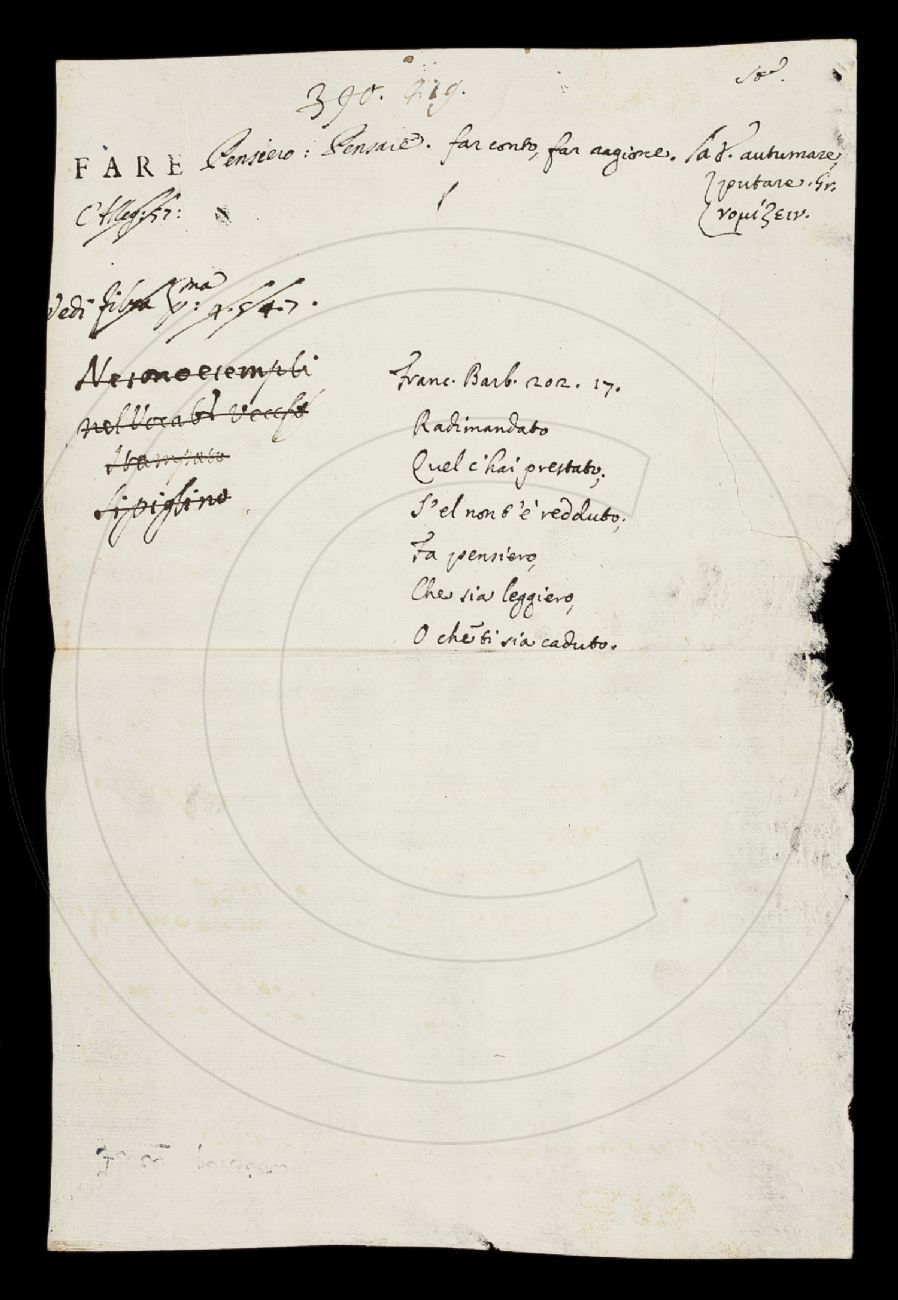 390. 219.
FARE Pensiero: Pensare. far conto, far ragione. Lat. autumare,
putare. Gr.
νομίζειν.
Vedi
Ne sono esempli
nel Vocab.
stampato
si piglino
Franc. Barb. 202. 17.
Radimandato
Quel c'hai prestato;
S'el non t'è redduto;
Fa pensiero,
Che sia leggiero,
O che ti sia caduto.